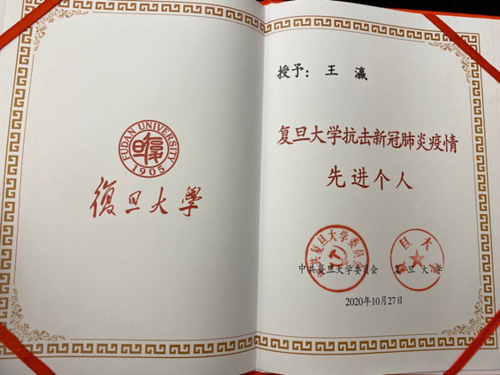 FUDAN UNIVERSITY
1905
復旦大學
授予：王 瀛
复旦大学抗击新冠肺炎疫情
先进个人
中共复旦大学委员会 复旦大学
2020年10月27日